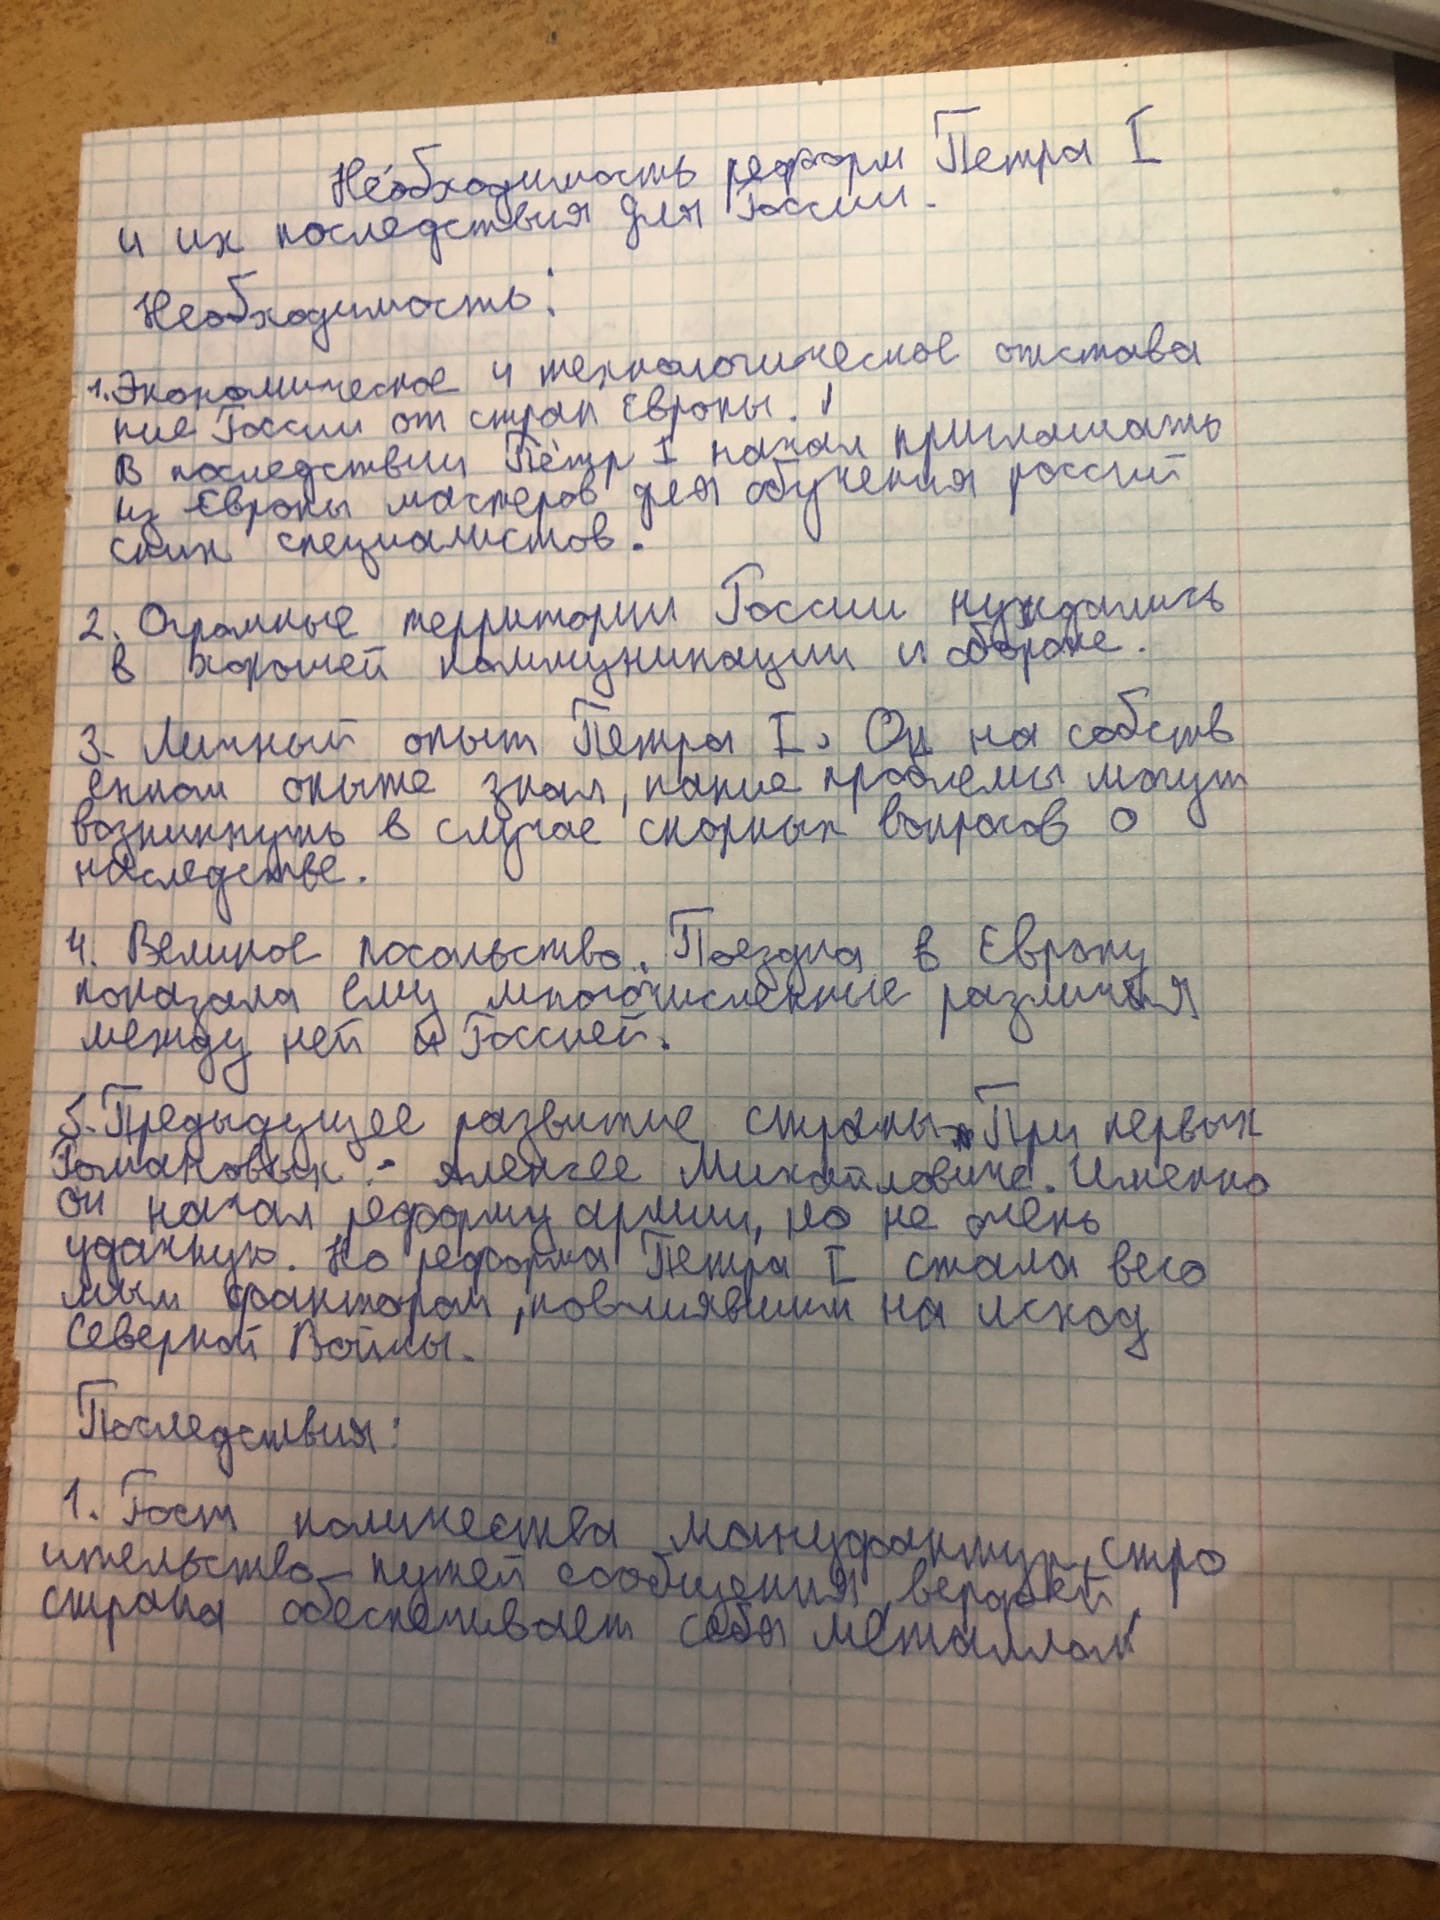 Необходимость реформ Петра I
и их последствия для России.
Необходимость:
1. Экономическое и технологическое отстава
ние России от стран Европы.
В последствии Пётр I начал приглашать
из Европы мастеров для обучения россий
ских специалистов.
2. Огромные территории России нуждались
в хорошей коммуникации и обороне.
3. Личный опыт Петра I. Он на собств
енном опыте знал, какие проблемы могут
возникнуть в случае спорных вопросов о
наследстве.
4. Великое посольство. Поездка в Европу
показала ему многочисленные различия
между ней и Россией.
5. Предыдущее развитие страны. При первых
Романовых - Алексее Михайловиче. Именно
он начал реформу армии, но не очень
удачную. Но реформа Петра I стала весо
мым фактором, повлиявшим на исход
Северной Войны.
Последствия:
1. Рост количества мануфактур, стро
ительство путей сообщения, верфей,
страна обеспечивает себя металлом